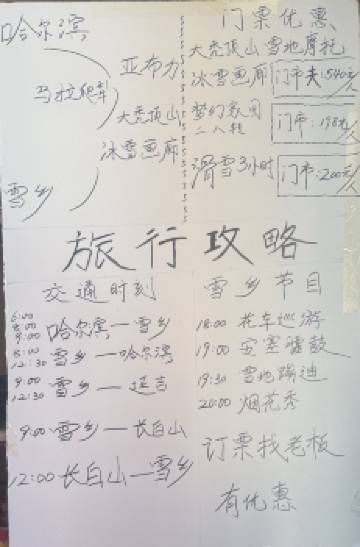 哈尔滨
亚布力
马拉爬犁
大秃顶山
冰雪画廊
雪乡
门票优惠
大秃顶山雪地摩托
冰雪画廊 门市夫:540元/
梦幻家园
二人转 门市:198元/
滑雪3小时 门市:200元/
旅行攻略
交通时刻
6:00
8:00
9:00 哈尔滨—雪乡
8:00
12:30 雪乡—哈尔滨
9:00
12:30 雪乡—延吉
9:00 雪乡—长白山
12:00 长白山—雪乡
雪乡节目
18:00 花车巡游
19:00 安塞锣鼓
19:30 雪地蹦迪
20:00 烟花秀
订票找老板
有优惠